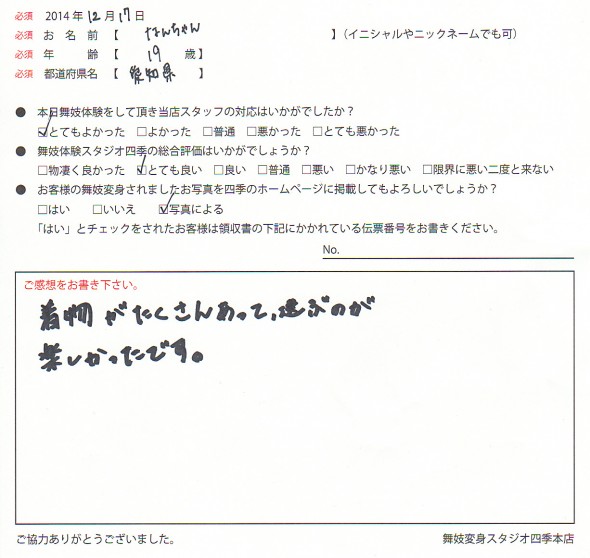 必須 2014年12月17日
必須 お名前【 なんちゃん 】(イニシャルやニックネームでも可)
必須 年齢【 19 歳】
必須 都道府県名【 愛知県 】
● 本日舞妓体験をして頂き当店スタッフの対応はいかがでしたか?
☑とてもよかった □よかった □普通 □悪かった □とても悪かった
● 舞妓体験スタジオ四季の総合評価はいかがでしょうか?
□物凄く良かった ☑とても良い □良い □普通 □悪い □かなり悪い □限界に悪い二度と来ない
● お客様の舞妓変身されましたお写真を四季のホームページに掲載してもよろしいでしょうか?
□はい □いいえ ☑写真による
「はい」とチェックをされたお客様は領収書の下記にかかれている伝票番号をお書きください。
No.
ご感想をお書き下さい。
着物がたくさんあって、選ぶのが
楽しかったです。
ご協力ありがとうございました。 舞妓変身スタジオ四季本店